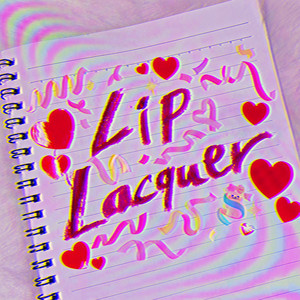 Lip
Lacquer